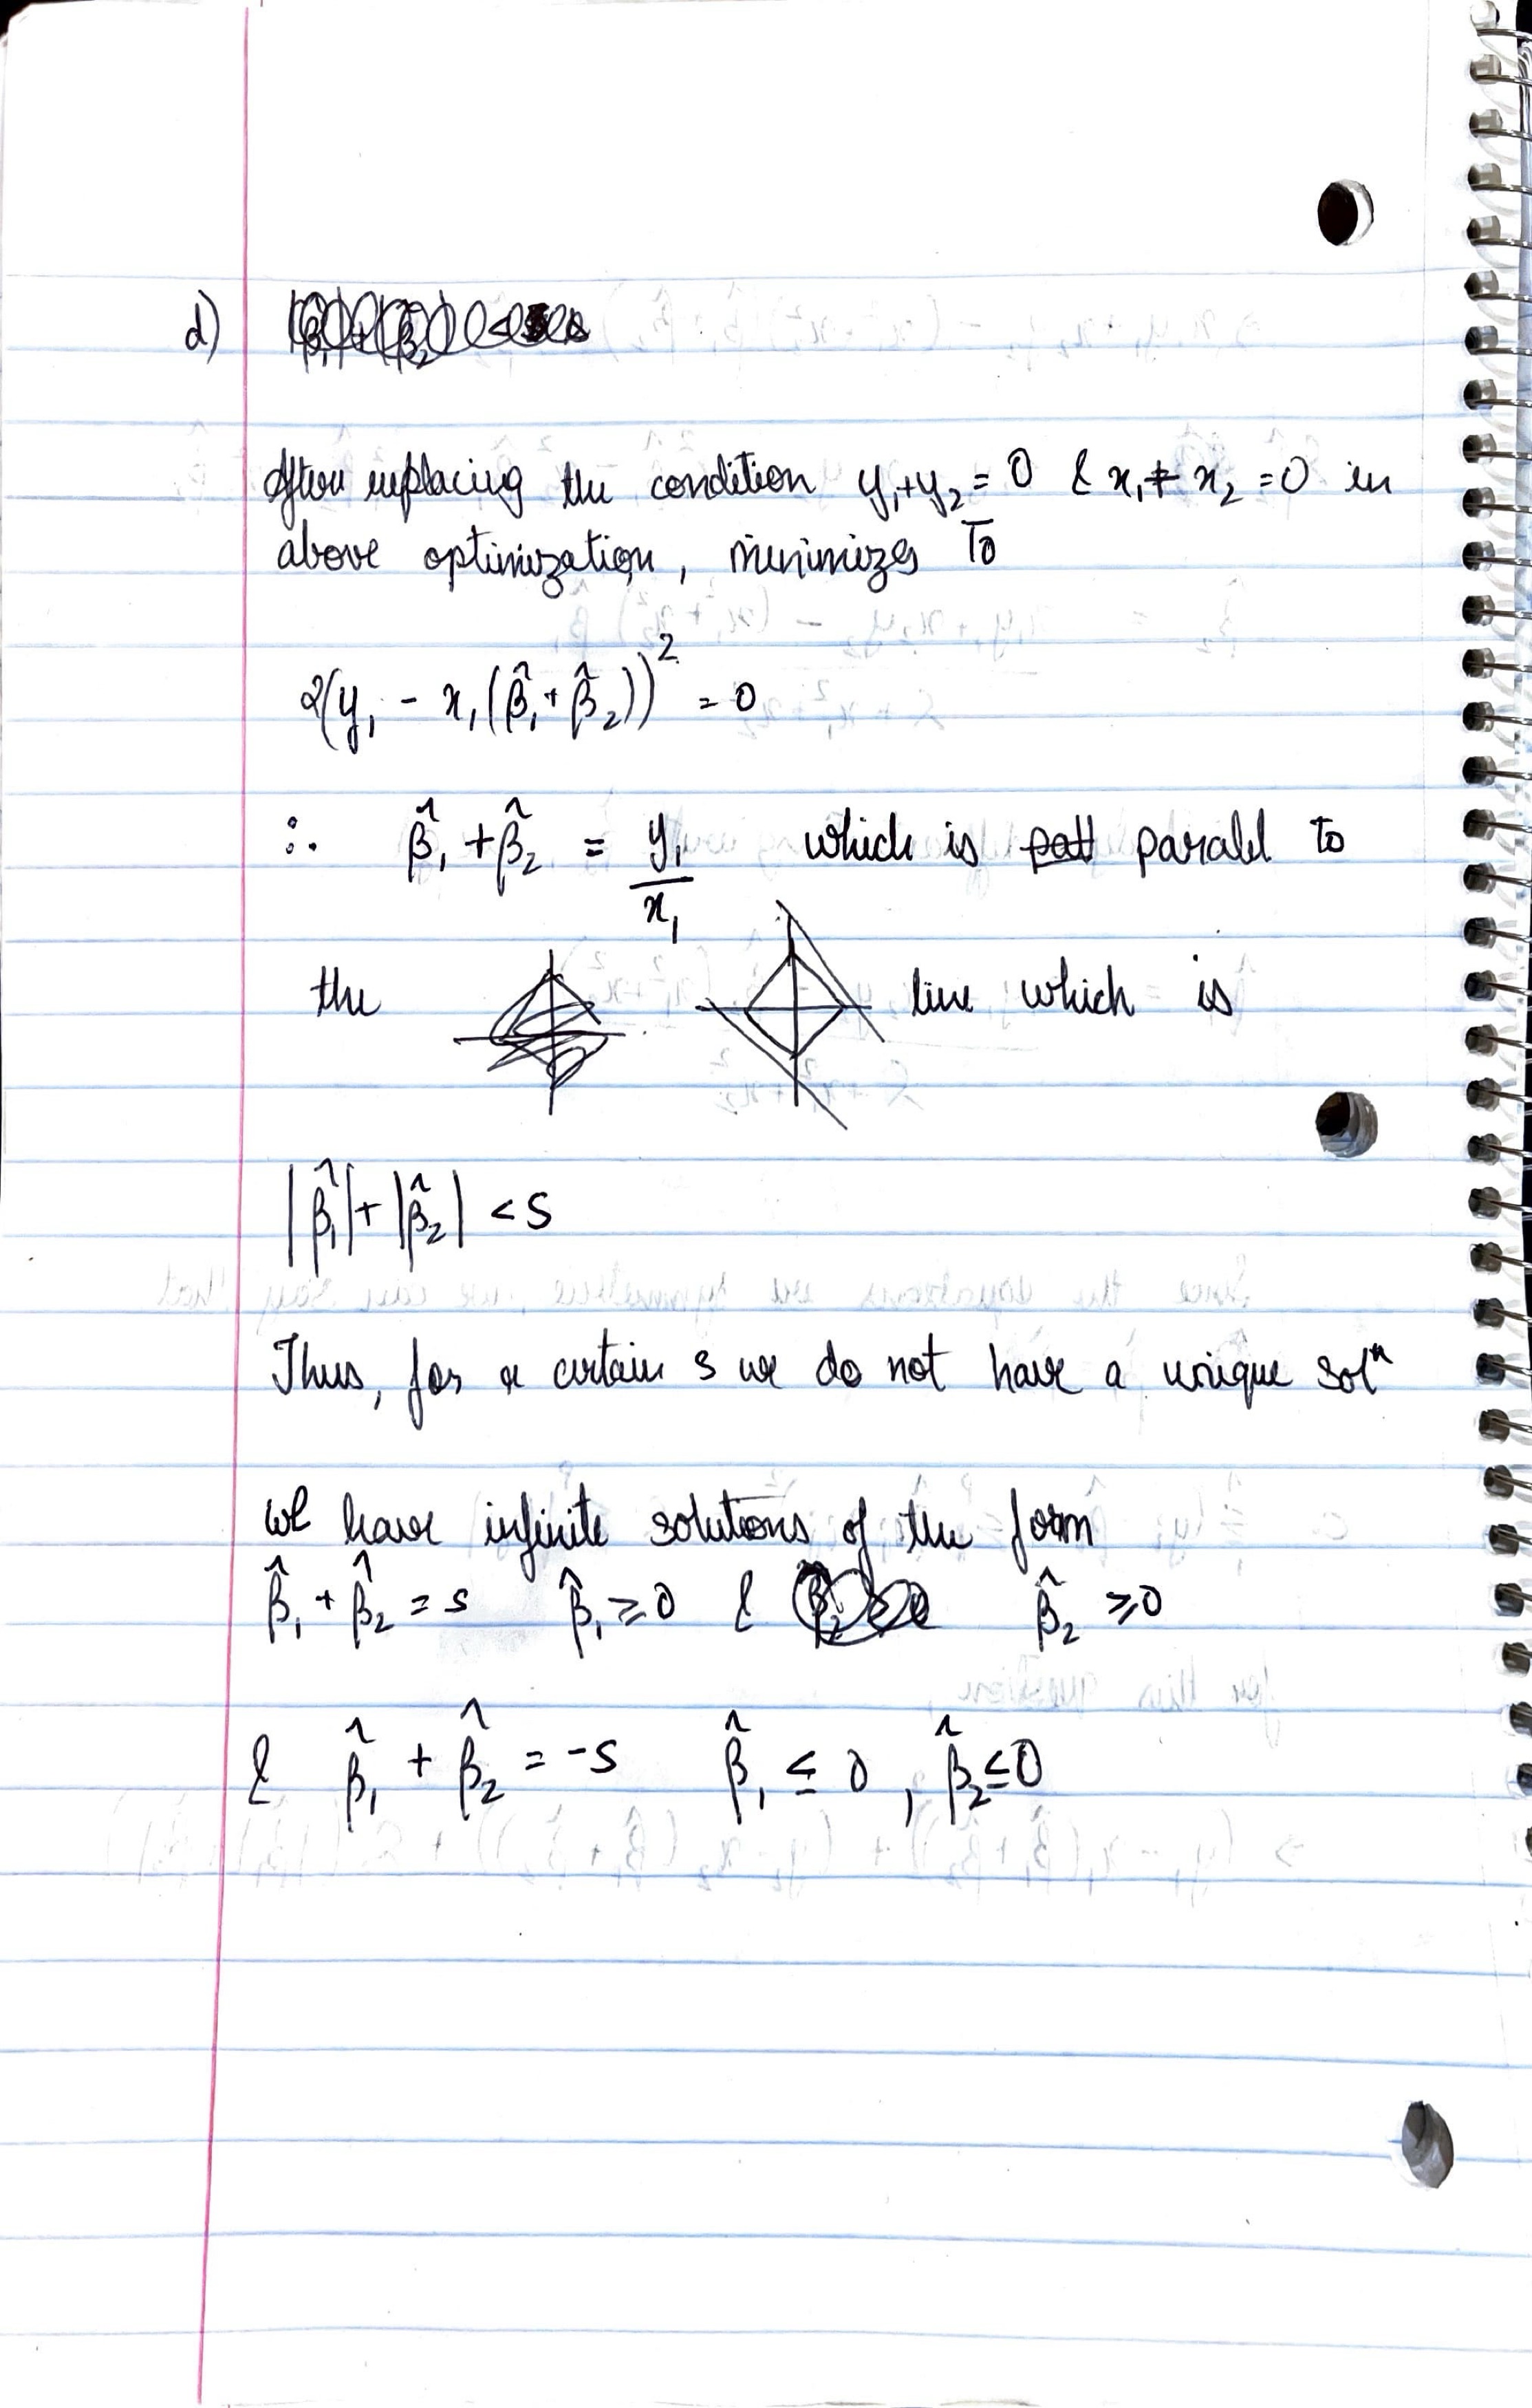 d)
After replacing the condition y₁+y₂ = 0 & x₁+ x₂ = 0 in
above optimization, minimizes to
2(y₁ - x₁(β̂₁+β̂₂))² = 0
∴ β̂₁ + β̂₂ = y₁/x₁ which is parallel to
the line which is
|β̂₁| + |β̂₂| < s
Thus, for a certain s we do not have a unique solⁿ
we have infinite solutions of the form
β̂₁ + β̂₂ = s β̂₁ ≥ 0 & β̂₂ ≥ 0
& β̂₁ + β̂₂ = -s β̂₁ ≤ 0 , β̂₂ ≤ 0